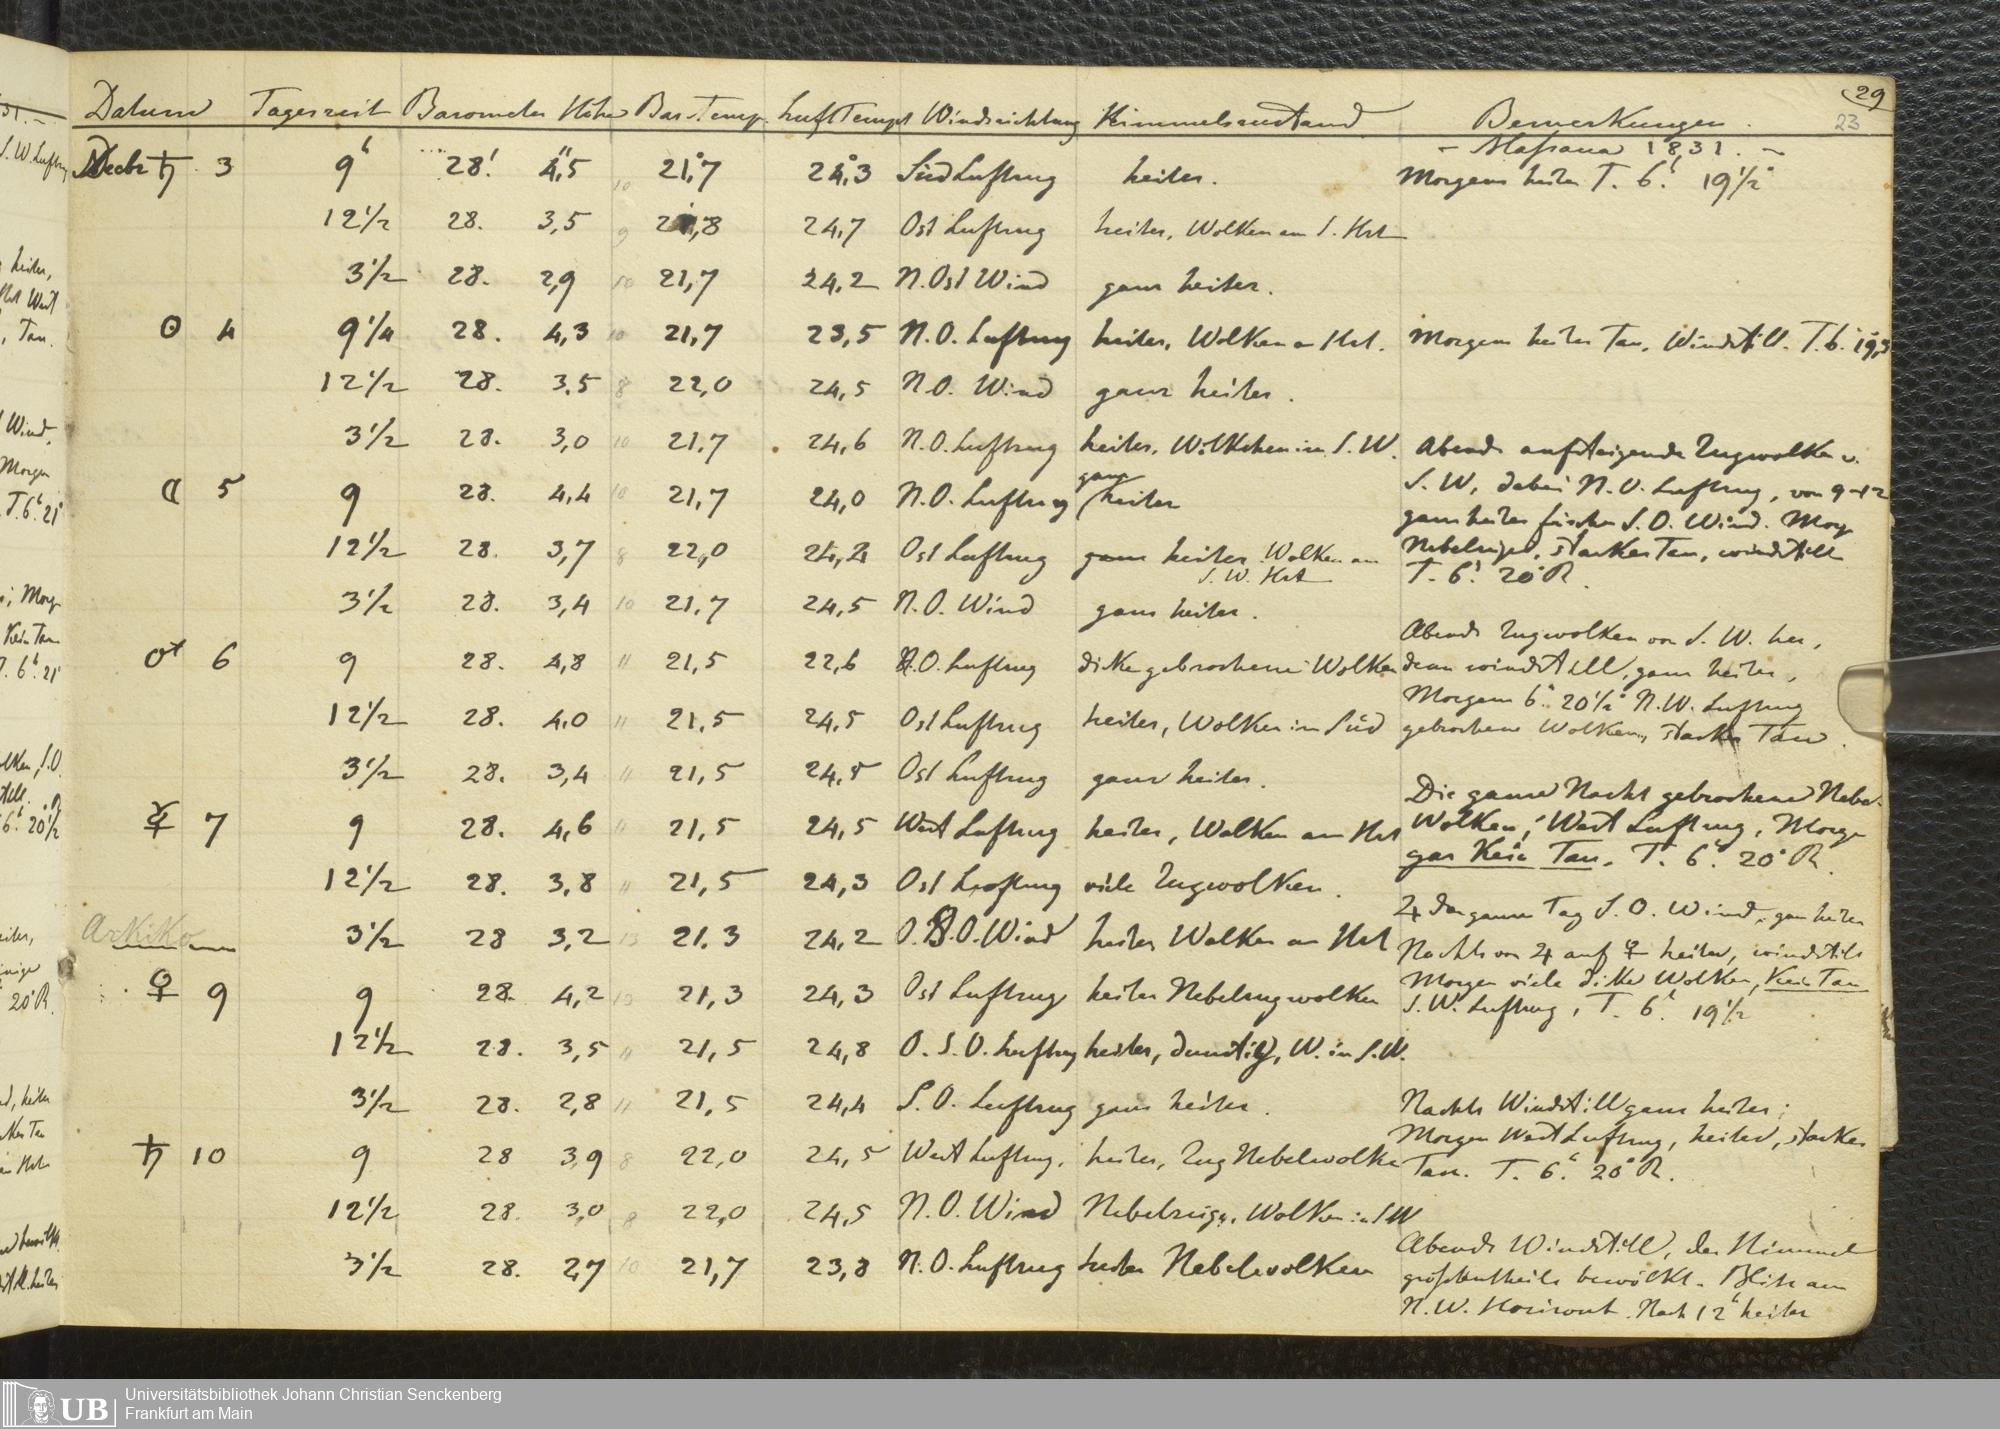 29
23
Datum Tageszeit Barometer Höhe Bar. Temp. Luft Temp. Windrichtung Himmelszustand Bemerkungen
- Massaua 1831. -
Decbr ♄ 3 9h 28' 4,5'' 10 21,°7 24,°3 Süd Luftzug heiter. Morgens heiter T. 6h. 19 1/2°
12 1/2 28. 3,5 9 21,8 24,7 Ost Luftzug heiter, Wolken am S. Hrt
3 1/2 28. 2,9 10 21,7 24,2 N. Ost Wind ganz heiter.
☉ 4 9 1/4 28. 4,3 10 21,7 23,5 N. O. Luftzug heiter, Wolken a Hrt. Morgens heiter Tau, Windstill. T. 6. 19,5
12 1/2 28. 3,5 8 22,0 24,5 N. O. Wind ganz heiter.
3 1/2 28. 3,0 10 21,7 24,6 N. O. Luftzug heiter, Wölkchen im S. W. Abends aufsteigende Zugwolken v.
☾ 5 9 28. 4,4 10 21,7 24,0 N. O. Luftzug ganz heiter S. W, dabei N. O. Luftzug, von 9-12
ganz heiter frischer S. O. Wind. Morg
12 1/2 28. 3,7 8 22,0 24,2 Ost Luftzug ganz heiter Wolken am S. W. Hrt Nebelzuge, starker Tau, windstill
T. 6h. 20° R.
3 1/2 28. 3,4 10 21,7 24,5 N. O. Wind ganz heiter.
Abends Zugwolken von S. W. her,
♂ 6 9 28. 4,8 11 21,5 22,6 N. O. Luftzug dicke gebrochene Wolken dann windstill, ganz heiter,
Morgens 6h. 20 1/2° N. W. Luftzug
12 1/2 28. 4,0 11 21,5 24,5 Ost Luftzug heiter, Wolken im Süd gebrochene Wolken, starker Tau.
3 1/2 28. 3,4 11 21,5 24,5 Ost Luftzug ganz heiter.
Die ganze Nacht gebrochene Nebel-
☿ 7 9 28. 4,6 11 21,5 24,5 West Luftzug heiter, Wolken am Hrt Wolken, West Luftzug, Morge
gar Kein Tau. T. 6h. 20° R.
12 1/2 28. 3,8 11 21,5 24,3 Ost Luftzug viele Zugwolken.
♃ den ganzen Tag S. O. Wind, ganz heiter
Arkiko 3 1/2 28 3,2 13 21.3 24,2 O. S. O. Wind heiter Wolken am Hrt Nachts von ♃ auf ♀ heiter, windstill
♀ 9 9 28. 4,2 13 21,3 24,3 Ost Luftzug heiter Nebelzugwolken Morgen viele dicke Wolken, Kein Tau
S. W. Luftzug, T. 6h. 19 1/2
12 1/2 28. 3,5 11 21,5 24,8 O. S. O. Luftzug heiter, dunstig, W. in S. W.
3 1/2 28. 2,8 11 21,5 24,4 S. O. Luftzug ganz heiter. Nachts Windstill ganz heiter;
Morgen West Luftzug, heiter, starker
♄ 10 9 28 3,9 8 22,0 24,5 West Luftzug. heiter, Zug Nebelwolke Tau. T. 6h. 20° R.
12 1/2 28. 3,0 8 22,0 24,5 N. O. Wind Nebelzuge, Wolken in SW
Abends Windstill, der Himmel
3 1/2 28. 2,7 10 21,7 23,8 N. O. Luftzug heiter Nebelwolken größtentheils bewölkt. Blitz am
N. W. Horizont. Nach 12h heiter
UB
Universitätsbibliothek Johann Christian Senckenberg
Frankfurt am Main